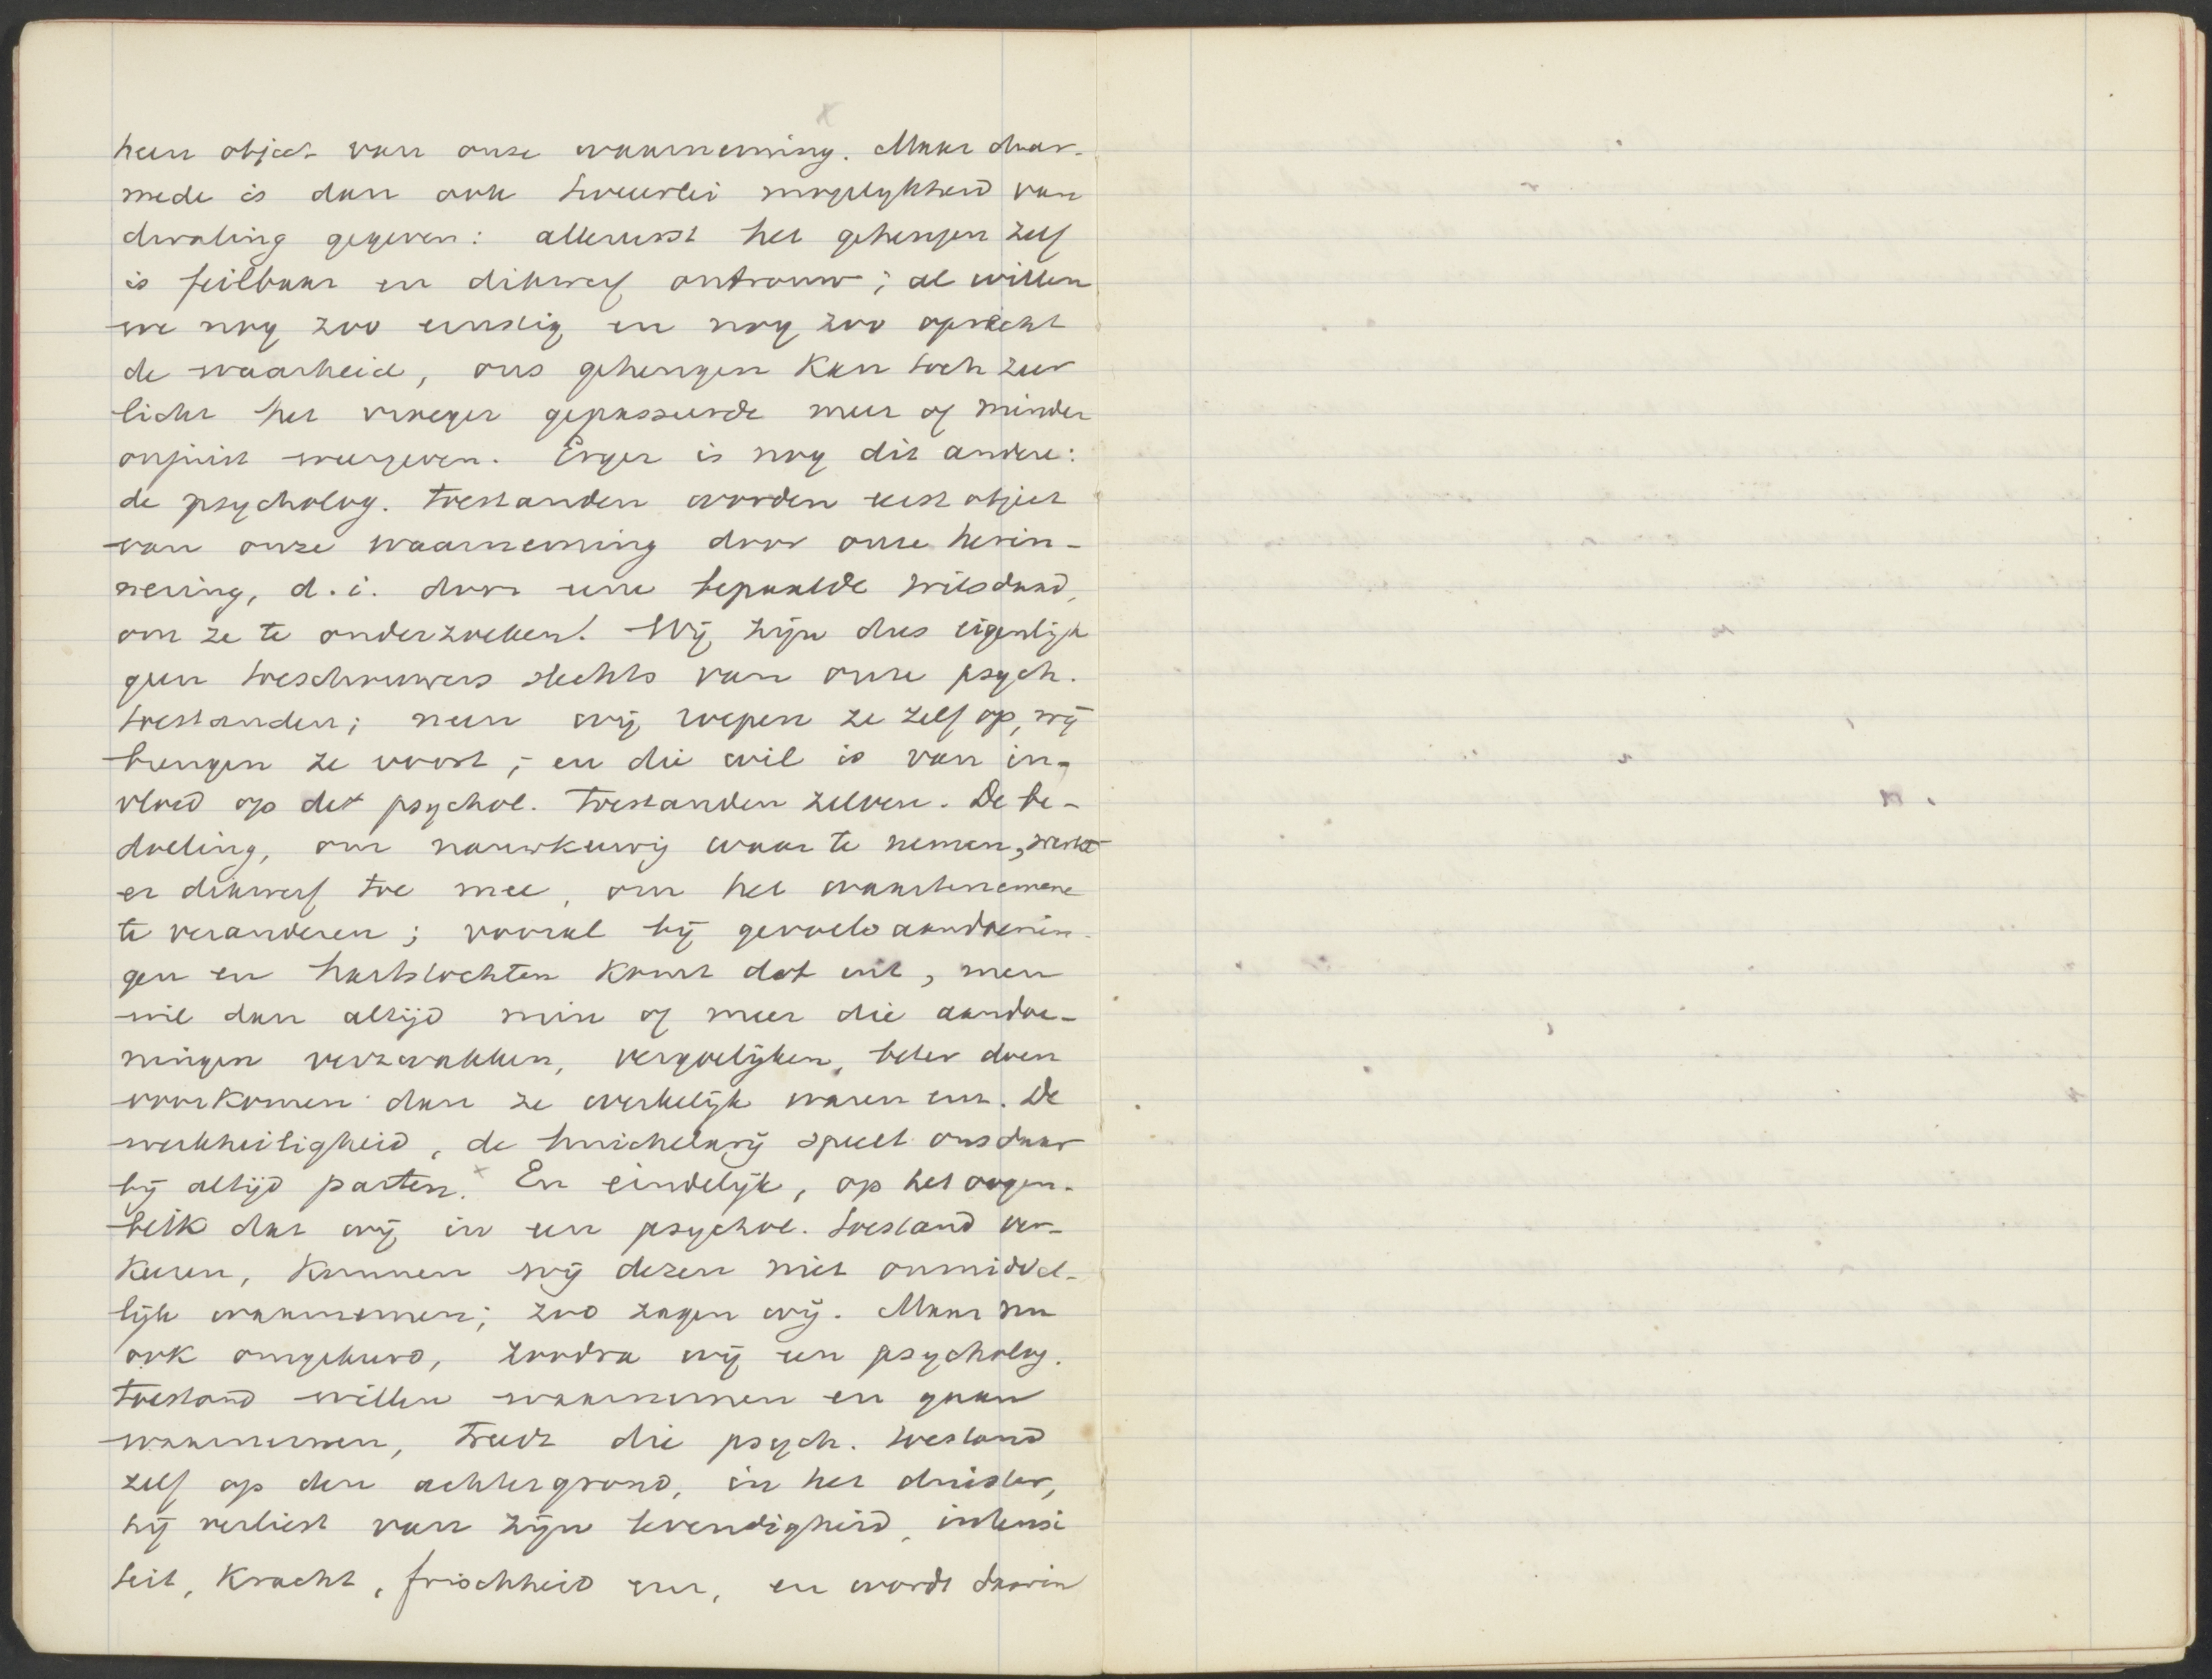 heen object van onze waarneming. Maar daar-
mede is dan ook tweeërlei mogelijkheid van
dwaling gegeven: allereerst het geheugen zelf
is feilbaar en dikwerf ontrouw; al willen
we nog zoo ernstig en nog zoo oprecht
de waarheid, ons geheugen kan toch zeer
licht het vroeger gepasseerde meer of minder
onjuist weergeven. Erger is nog dit andere:
de psycholog. toestanden worden eerst object
van onze waarneming door onze herin-
nering, d.i. door eene bepaalde wilsdaad,
om ze te onderzoeken! Wij zijn dus eigenlijk
geen toeschouwers slechts van onze psych.
toestanden; neen wij roepen ze zelf op, wij
brengen ze voort; en die wil is van in-
vloed op de psychol. toestanden zelven. De be-
doeling, om nauwkeurig waar te nemen, werkt
er dikwerf toe mee, om het waartenemene
te veranderen; vooral bij gevoelsaandoenin-
gen en hartstochten komt dat uit, men
wil dan altijd min of meer die aandoe-
ningen verzwakken, vergoelijken, beter doen
voorkomen dan ze werkelijk waren enz. De
werkheiligheid, de huichelarij speelt ons daar
bij altijd parten. x En eindelijk, op het oogen-
blik dat wij in een psychol. toestand ver-
keeren, kunnen wij dezen niet onmiddel-
lijk waarnemen; zoo zagen wij. Maar nu
ook omgekeerd, zoodra wij een psycholog.
toestand willen waarnemen en gaan
waarnemen, treedt die psych. toestand
zelf op den achtergrond, in het duister,
hij verliest van zijn levendigheid, intensi
teit, kracht, frischheid enz, en wordt daarin